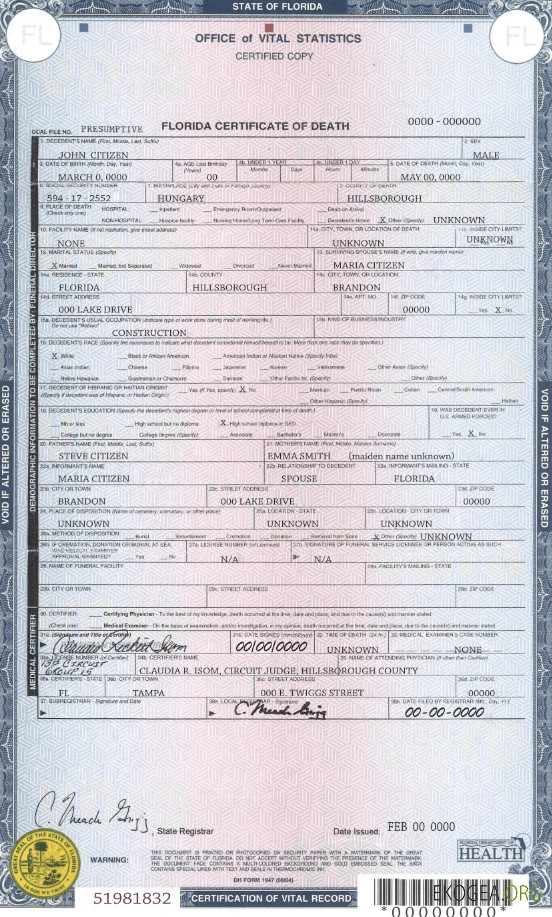 STATE OF FLORIDA
FL FL
OFFICE of VITAL STATISTICS
CERTIFIED COPY
0000 - 000000
OCAL FILE NO. PRESUMPTIVE FLORIDA CERTIFICATE OF DEATH
1. DECEDENT'S NAME (First, Middle, Last, Suffix) 2. SEX
JOHN CITIZEN MALE
3. DATE OF BIRTH (Month, Day, Year) 4a. AGE-Last Birthday (Years) 4b. UNDER 1 YEAR Months Days 4c. UNDER 1 DAY Hours Minutes 5. DATE OF DEATH (Month, Day, Year)
MARCH 0, 0000 00 MAY 00, 0000
6. SOCIAL SECURITY NUMBER 7. BIRTHPLACE (City and State or Foreign Country) 8. COUNTY OF DEATH
594 - 17 - 2552 HUNGARY HILLSBOROUGH
9. PLACE OF DEATH (Check only one) HOSPITAL: Inpatient Emergency Room/Outpatient Dead on Arrival
NON-HOSPITAL: Hospice facility Nursing Home/Long Term Care Facility Decedent's Home X Other (Specify) UNKNOWN
10. FACILITY NAME (If not institution, give street address) 11a. CITY, TOWN, OR LOCATION OF DEATH 11b. INSIDE CITY LIMITS?
NONE UNKNOWN UNKNOWN
12. MARITAL STATUS (Specify) 13. SURVIVING SPOUSE'S NAME (If wife, give maiden name)
X Married Married, but Separated Widowed Divorced Never Married MARIA CITIZEN
14a. RESIDENCE - STATE 14b. COUNTY 14c. CITY, TOWN, OR LOCATION
FLORIDA HILLSBOROUGH BRANDON
14d. STREET ADDRESS 14e. APT. NO. 14f. ZIP CODE 14g. INSIDE CITY LIMITS?
000 LAKE DRIVE 00000 Yes X No
15a. DECEDENT'S USUAL OCCUPATION (Indicate type of work done during most of working life.) 15b. KIND OF BUSINESS/INDUSTRY
Do not use "Retired" CONSTRUCTION
16. DECEDENT'S RACE (Specify the race/races to indicate what decedent considered himself/herself to be. More than one race may be specified.)
X White Black or African American American Indian or Alaskan Native (Specify tribe)
Asian Indian Chinese Filipino Japanese Korean Vietnamese Other Asian (Specify)
Native Hawaiian Guamanian or Chamorro Samoan Other Pacific Isl. (Specify) Other (Specify)
17. DECEDENT OF HISPANIC OR HAITIAN ORIGIN? Yes (If Yes, specify) X No Mexican Puerto Rican Cuban Central/South American
(Specify if decedent was of Hispanic or Haitian Origin.) Other Hispanic (Specify) Haitian
18. DECEDENT'S EDUCATION (Specify the decedent's highest degree or level of school completed at time of death.) 19. WAS DECEDENT EVER IN U.S. ARMED FORCES?
8th or less High school but no diploma X High school diploma or GED
College but no degree College degree (Specify): Associate Bachelor's Master's Doctorate Yes X No
20. FATHER'S NAME (First, Middle, Last, Suffix) 21. MOTHER'S NAME (First, Middle, Maiden Surname)
STEVE CITIZEN EMMA SMITH (maiden name unknown)
22a. INFORMANT'S NAME 22b. RELATIONSHIP TO DECEDENT 23a. INFORMANT'S MAILING - STATE
MARIA CITIZEN SPOUSE FLORIDA
23b. CITY OR TOWN 23c. STREET ADDRESS 23d. ZIP CODE
BRANDON 000 LAKE DRIVE 00000
24. PLACE OF DISPOSITION (Name of cemetery, crematory, or other place) 25a. LOCATION - STATE 25b. LOCATION - CITY OR TOWN
UNKNOWN UNKNOWN UNKNOWN
26a. METHOD OF DISPOSITION Burial Entombment Cremation Donation Removal from State X Other (Specify) UNKNOWN
26b. IF CREMATION, DONATION OR BURIAL AT SEA, WAS MEDICAL EXAMINER APPROVAL GRANTED? Yes No 27a. LICENSE NUMBER (of Licensee) 27b. SIGNATURE OF FUNERAL SERVICE LICENSEE OR PERSON ACTING AS SUCH
N/A N/A
28. NAME OF FUNERAL FACILITY 29a. FACILITY'S MAILING - STATE
29b. CITY OR TOWN 29c. STREET ADDRESS 29d. ZIP CODE
30. CERTIFIER: Certifying Physician - To the best of my knowledge, death occurred at the time, date and place, and due to the cause(s) and manner stated.
(Check one) Medical Examiner - On the basis of examination, and/or investigation, in my opinion, death occurred at the time, date, place, and due to the cause(s) and manner stated.
31a. (Signature and Title of Certifier) 31b. DATE SIGNED (mm/dd/yyyy) 32. TIME OF DEATH (24 hr.) 33. MEDICAL EXAMINER'S CASE NUMBER
00/00/0000 UNKNOWN NONE
34a. LICENSE NUMBER (of Certifier) 34b. CERTIFIER'S NAME 35. NAME OF ATTENDING PHYSICIAN (If other than Certifier)
CLAUDIA R. ISOM, CIRCUIT JUDGE, HILLSBOROUGH COUNTY
36a. CERTIFIER'S - STATE 36b. CITY OR TOWN 36c. STREET ADDRESS 36d. ZIP CODE
FL TAMPA 000 E. TWIGGS STREET 00000
37. SUBREGISTRAR - Signature and Date 38a. LOCAL REGISTRAR - Signature 38b. DATE FILED BY REGISTRAR (Mo., Day, Yr.)
C. Meade Grigg 00-00-0000
DEMOGRAPHIC INFORMATION TO BE COMPLETED BY: FUNERAL DIRECTOR
MEDICAL CERTIFIER
VOID IF ALTERED OR ERASED
VOID IF ALTERED OR ERASED
C. Meade Grigg , State Registrar Date Issued: FEB 00 0000
GREAT SEAL OF THE STATE OF FLORIDA
IN GOD WE TRUST
WARNING:
THIS DOCUMENT IS PRINTED OR PHOTOCOPIED ON SECURITY PAPER WITH A WATERMARK OF THE GREAT
SEAL OF THE STATE OF FLORIDA. DO NOT ACCEPT WITHOUT VERIFYING THE PRESENCE OF THE WATERMARK.
THE DOCUMENT FACE CONTAINS A MULTI-COLORED BACKGROUND AND GOLD EMBOSSED SEAL. THE BACK
CONTAINS SPECIAL LINES WITH TEXT AND SEALS IN THERMOCHROMIC INK.
DH FORM 1947 (08/04)
FLORIDA DEPARTMENT OF
HEALTH
51981832
CERTIFICATION OF VITAL RECORD
EKOGEA.ORG
*00000000*